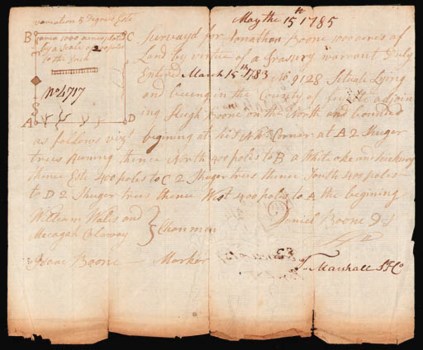 May the 15th 1785
variation 5 Degrees East
B
C
2
No 4717
A
D
Surveyed for Jonathan Boone 1000 acres of
Land by virtue of a Treasury warrant Duly
Entered March 15th 1783 No 9128 Situate Lying
and being in the County of adjoin
ing Hugh Boone on the North and bounded
as follows viz begining at his NW Corner at A 2 Shuger
trees Runing thence North 400 poles to B a White oak and hickury
thence East 400 poles to C 2 Shuger trees thence South 400 poles
to D 2 Shuger trees thence West 400 poles to A the begining
William Wals and
Micagah Calaway
Chanmen
Daniel Boone D S
Isaac Boone Marker
T Marshall S F C